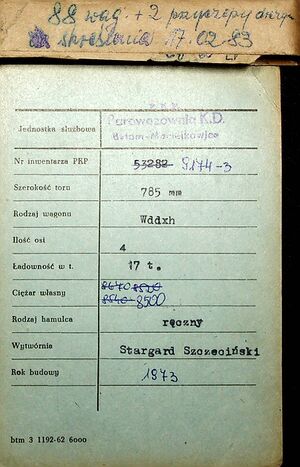 88 wag. + 2 przyczepy
do skreślenia 17.02.83
P.K.P.
Jednostka służbowa Parowozownia K.D.
Bytom-Maciejkowice
Nr inwentarza PKP 53282 S174-3
Szerokość toru 785 mm
Rodzaj wagonu Wddxh
Ilość osi 4
Ładowność w t. 17 t.
Ciężar własny 8640 8520
8540 8500
Rodzaj hamulca ręczny
Wytwórnia Stargard Szczeciński
Rok budowy 1973
btm 3 1192-62 6000